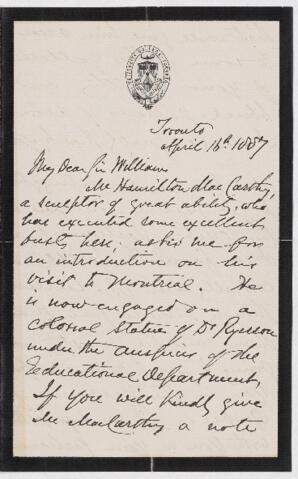 Toronto
April 16th. 1887
My Dear Sir William
Mr Hamilton MacCarthy,
a sculptor of great ability, who
has executed some excellent
busts here, asks me for
an introduction on his
visit to Montreal. He
is now engaged on a
colossal Statue of Dr Ryerson
under the auspices of the
Educational Department.
If you will kindly give
Mr MacCarthy a note